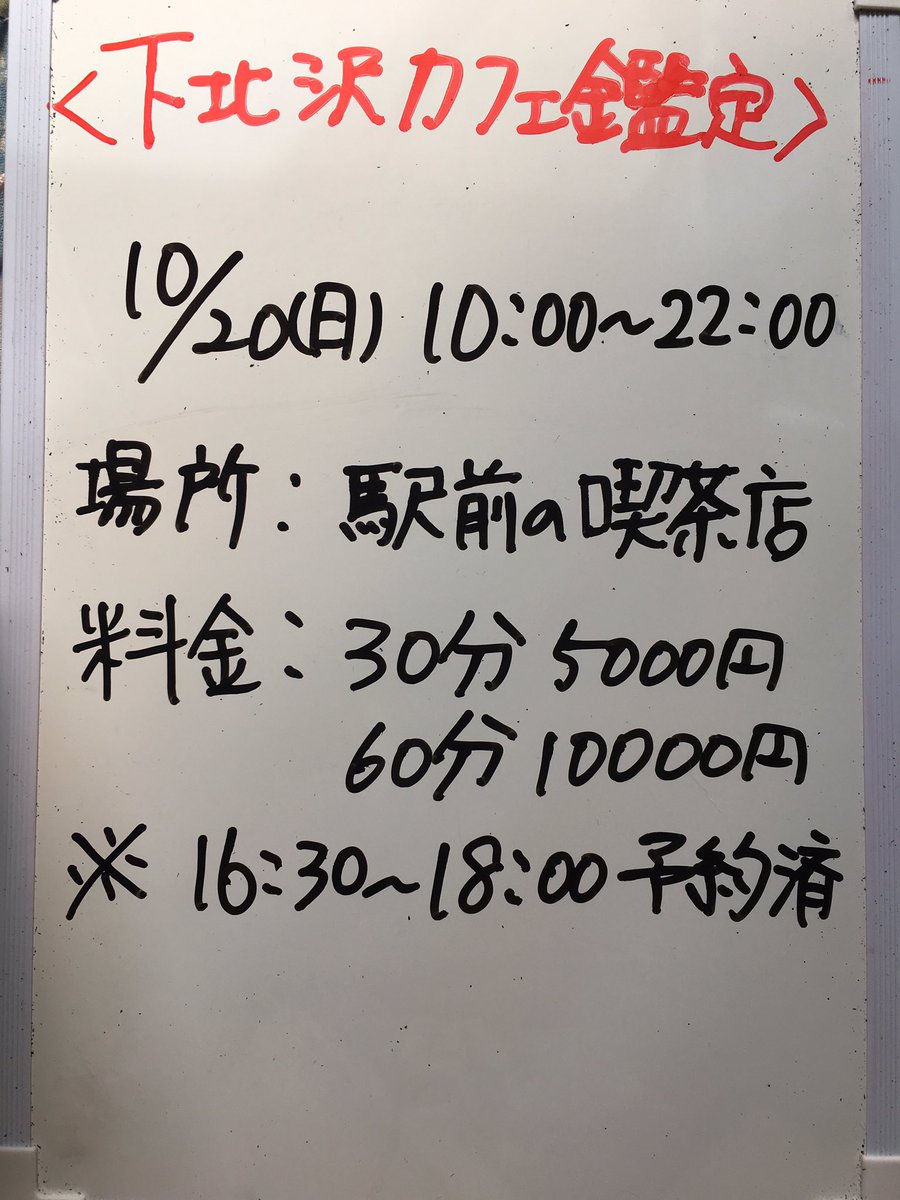 <下北沢カフェ鑑定>
10/20(日) 10:00~22:00
場所:駅前の喫茶店
料金:30分 5000円
60分 10000円
※ 16:30~18:00 予約済